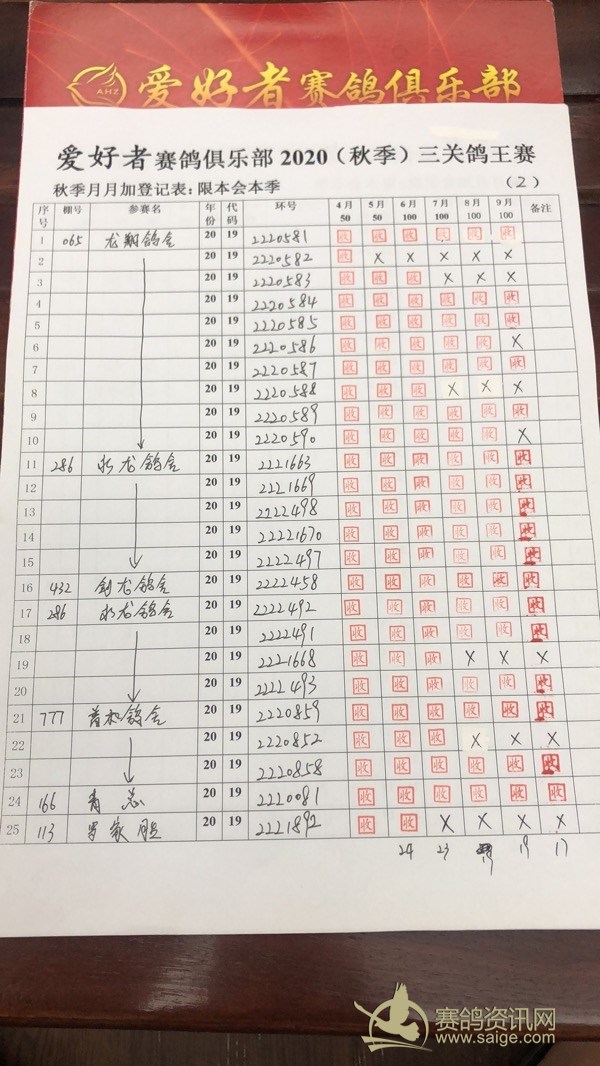 AHZ 爱好者赛鸽俱乐部
爱好者赛鸽俱乐部2020（秋季）三关鸽王赛
秋季月月加登记表：限本会本季 （2）
序号 棚号 参赛名 年份 代码 环号 4月50 5月50 6月100 7月100 8月100 9月100 备注
1 065 龙翔鸽舍 20 19 2220581 收 收 收 收 收 收
2 20 19 2220582 收 X X X X X
3 20 19 2220583 收 收 收 X X X
4 20 19 2220584 收 收 收 收 收 收
5 20 19 2220585 收 收 收 收 收 收
6 20 19 2220586 收 收 收 收 收 X
7 20 19 2220587 收 收 收 收 收 收
8 20 19 2220588 收 收 收 X X X
9 20 19 2220589 收 收 收 收 收 收
10 20 19 2220590 收 收 收 收 收 X
11 286 永龙鸽舍 20 19 2221663 收 收 收 收 收 收
12 20 19 2221669 收 收 收 收 收 收
13 20 19 2222498 收 收 收 收 收 收
14 20 19 22221670 收 收 收 收 收 收
15 20 19 2222497 收 收 收 收 收 收
16 432 剑龙鸽舍 20 19 2222458 收 收 收 收 收 收
17 286 永龙鸽舍 20 19 2222492 收 收 收 收 收 收
18 20 19 2222491 收 收 收 收 收 收
19 20 19 2221668 收 收 收 X X X
20 20 19 2222493 收 收 收 收 收 收
21 777 鸽舍 20 19 2220859 收 收 收 收 收 收
22 20 19 2220852 收 收 收 X X X
23 20 19 2220858 收 收 收 收 收 收
24 166 青总 20 19 2220081 收 收 收 收 收 收
25 113 罗家 20 19 2221892 收 收 X X X X
24 23 19 19 17
赛鸽资讯网
www.saige.com